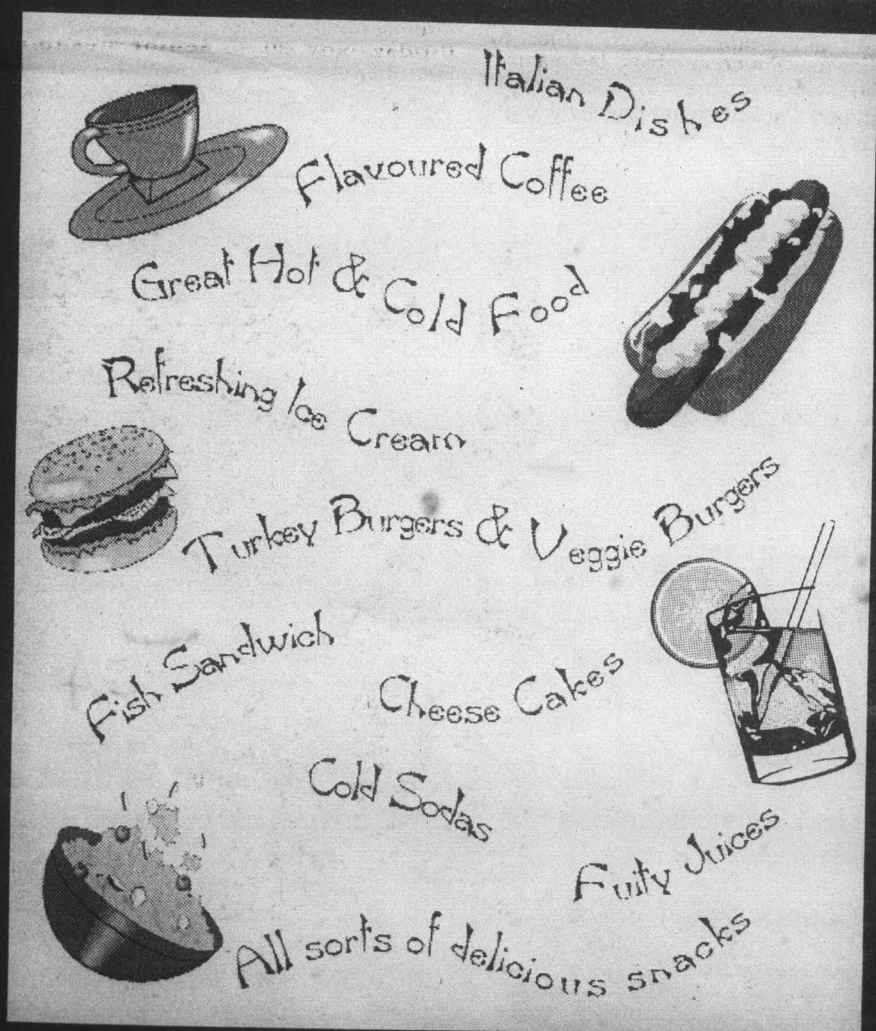 Italian Dishes
Flavoured Coffee
Great Hot & Cold Food
Refreshing Ice Cream
Turkey Burgers & Veggie Burgers
Fish Sandwich
Cheese Cakes
Cold Sodas
Fuity Juices
All sorts of delicious snacks